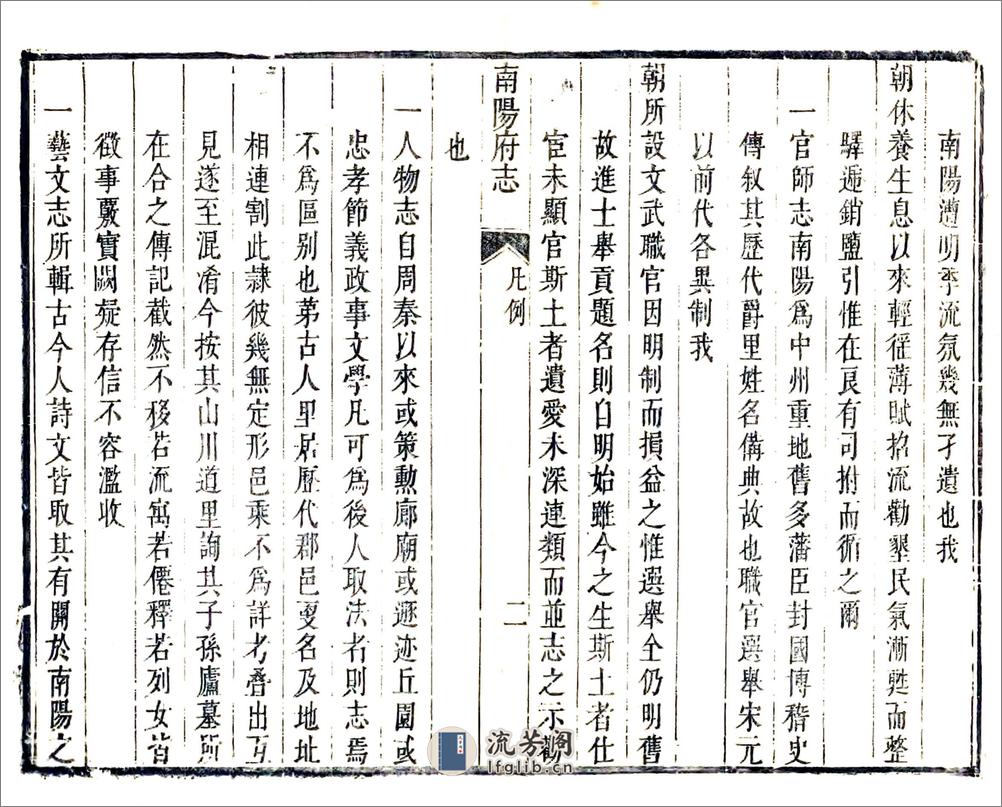 南陽遭明季流氛幾無孑遺也我
朝休養生息以來輕徭薄賦招流勸墾民氣漸甦而整
驛遞銷鹽引惟在良有司拊而循之爾
一官師志南陽爲中州重地舊多藩臣封國博稽史
傳叙其歷代爵里姓名備典故也職官選舉宋元
以前代各異制我
朝所設文武職官因明制而損益之惟選舉全仍明舊
故進士舉貢題名則自明始雖今之生斯土者仕
宦未顯官斯土者遺愛未深連類而並志之示勸
也
南陽府志
凡例
二
一人物志自周秦以來或策勲廊廟或遯迹丘園或
忠孝節義政事文學凡可爲後人取法者則志焉
不爲區别也第古人里居歷代郡邑更名及地址
相連割此隷彼幾無定形邑乘不爲詳考叠出互
見遂至混淆今按其山川道里詢其子孫廬墓所
在合之傳記截然不移若流寓若僊釋若列女皆
徴事覈實闕疑存信不容濫收
一藝文志所輯古今人詩文皆取其有關於南陽之
流芳閣
lfglib.cn